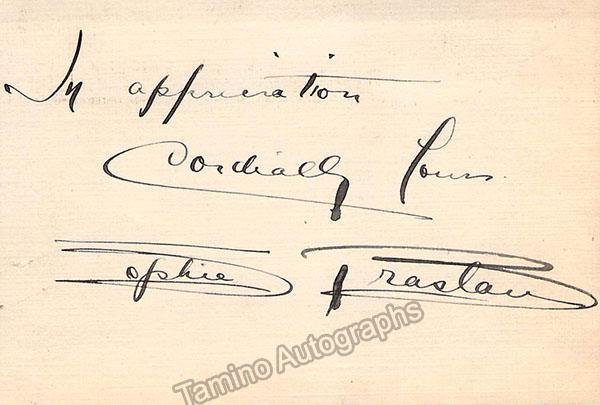 In appreciation
Cordially Yours
Sophie Braslau
Tamino Autographs